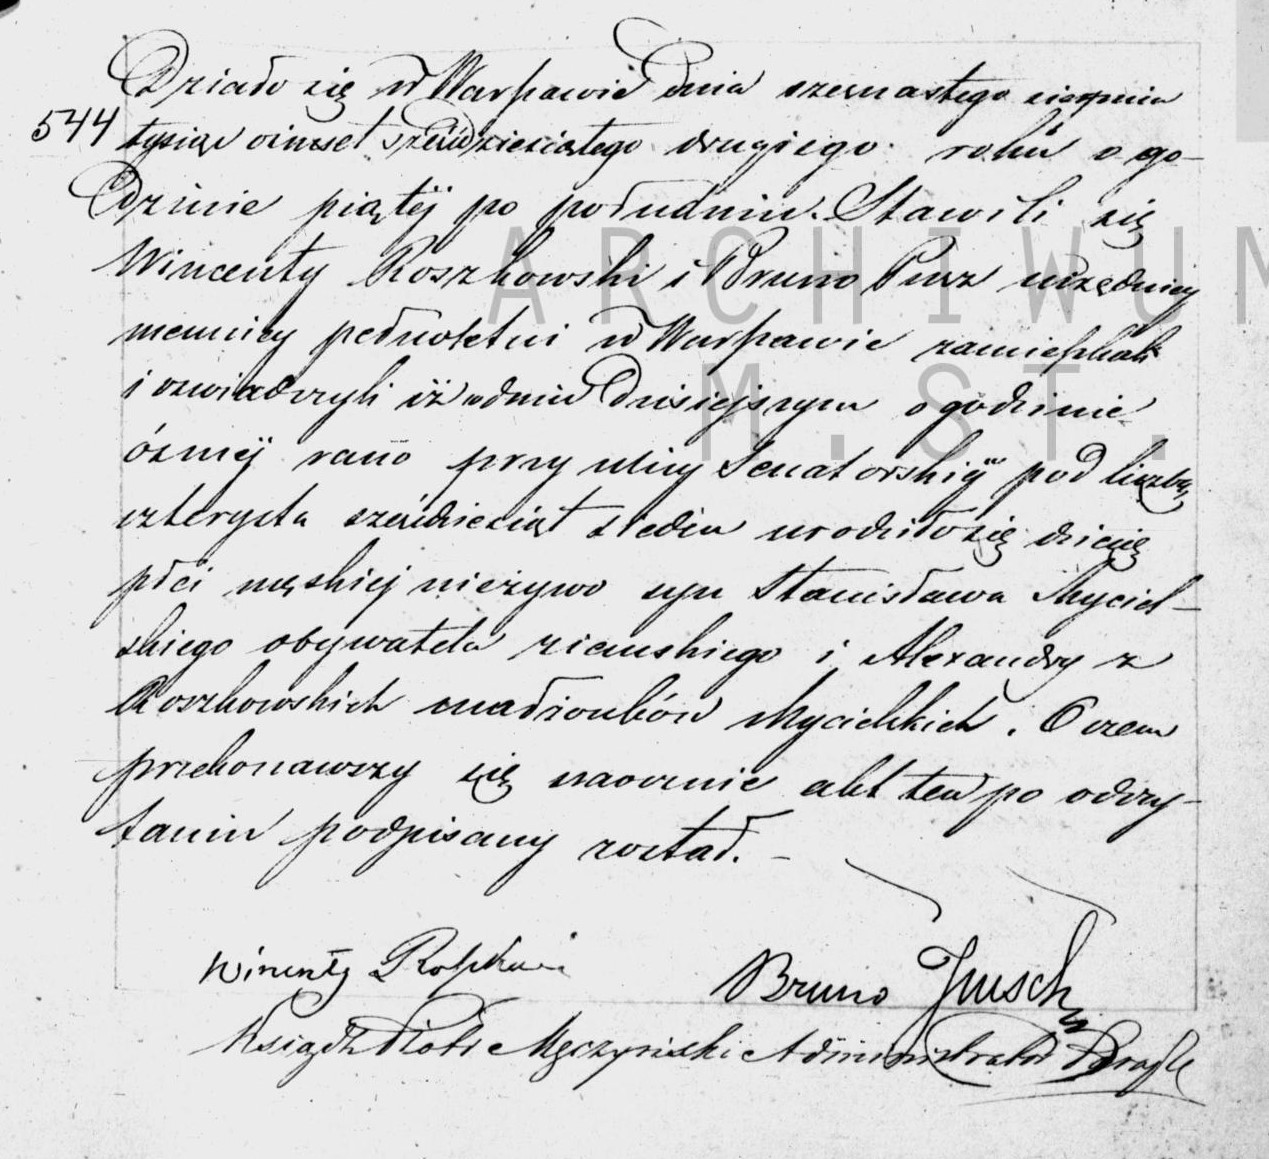 Działo się w Warszawie dnia szesnastego sierpnia
544 tysiąc ośmset sześdziesiątego drugiego roku o go-
dzinie piątéj po południu. Stawili się
Wincenty Roszkowski i Bruno urzędnicy
mennicy pełnoletni w Warszawie zamieszkali
i oświadczyli iż w dniu dzisiejszym o godzinie
ósméj rano przy ulicy Senatorskiéj pod liczbą
czterysta sześdziesiąt siedm urodziło się dziecię
płci męzkiej nieżywo syn Stanisława Myciel-
skiego obywatela ziemskiego i Alexandry z
Roszkowskich małżonków Mycielskich. O czem
przekonawszy się naocznie akt ten po odczy-
taniu podpisany został. -
Wincenty Roszkowski Bruno
Ksiądz Piotr Męczyński Administrator
ARCHIWUM
M. ST.